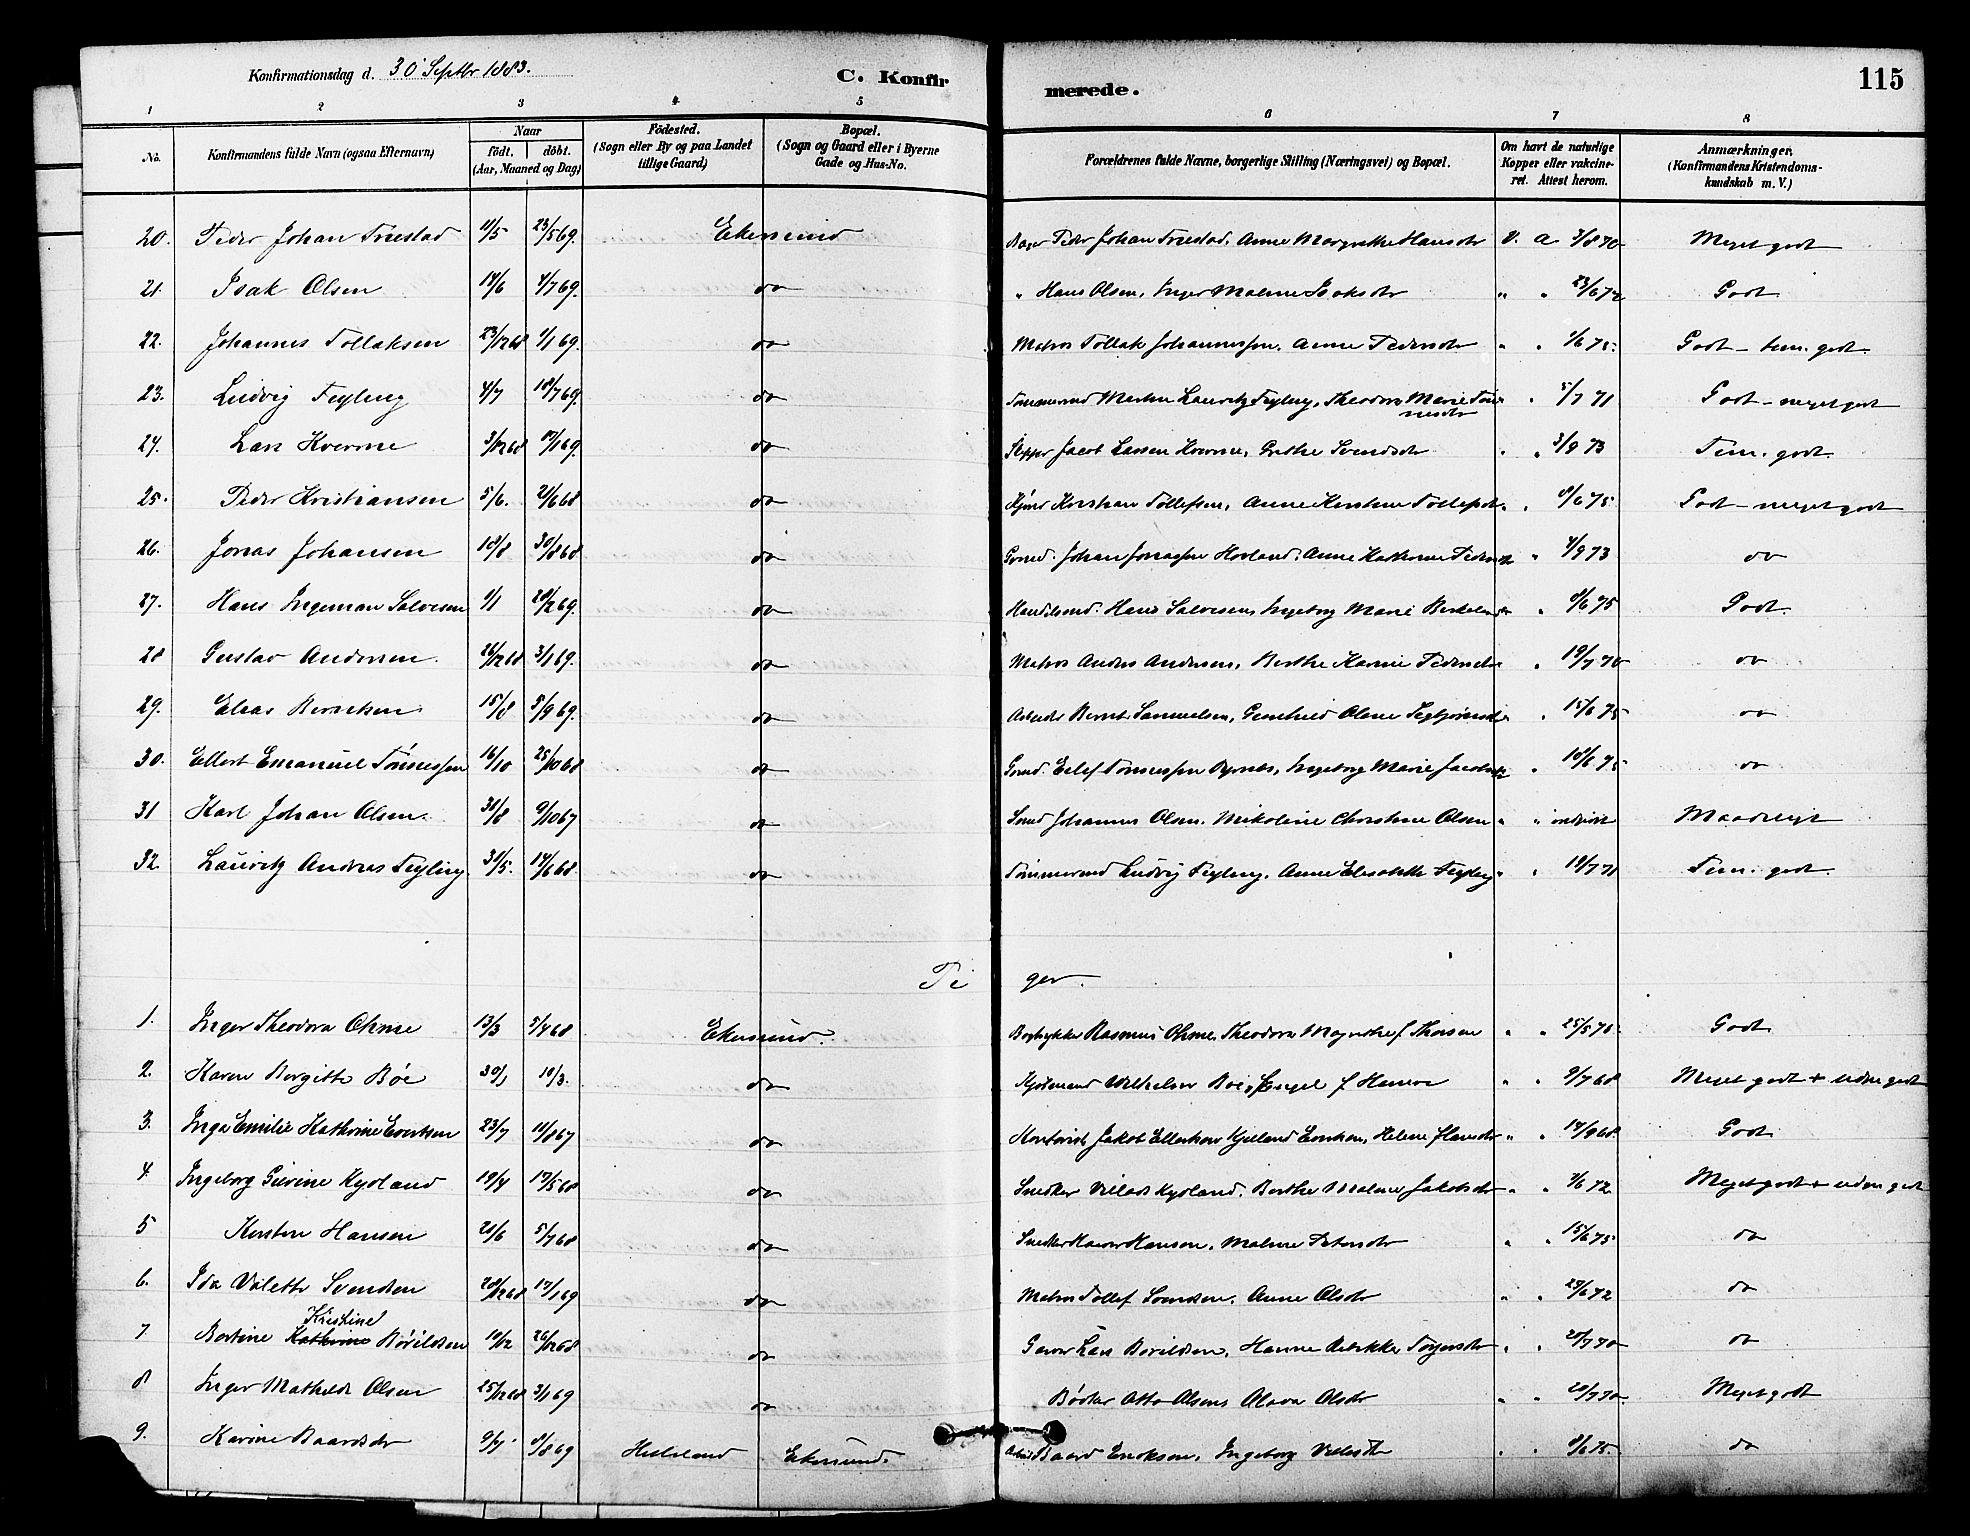 Konfirmationsdag d. 30 Septbr 1883. C. Konfirmerede. 115
1 2 3 4 5 6 7 8
No. Konfirmandens fulde Navn (ogsaa Efternavn) Naar født, døbt. (Aar, Maaned og Dag) Födested. (Sogn eller By og paa Landet tillige Gaard) Bopæl. (Sogn og Gaard eller i Byerne Gade og Hus-No. Forældrenes fulde Navne, borgerlige Stilling (Næringsvei) og Bopæl. Om havt de naturlige Kopper eller vakcineret. Attest herom. Anmærkninger, (Konfirmandens Kristendomskundskab m. V.)
20. Peder Johan Friestad 11/5 23/5 69. Ekersund Bager Peder Johan Friestad, Anne Margrethe Hansdr V. a 3/8 70 Meget godt
21. Isak Olsen 14/6 4/7 69. do " Hans Olsen, Inger Malene Isaksdr " " 23/6 72 Godt
22. Johannes Tollaksen 23/12 68 1/1 69. do Matros Tollak Johannessen, Anne Pedersdr " " 1/6 75. Godt - tem. godt.
23. Ludvig Feyling 4/7 18/7 69. do Tømmermd Martin Lauritz Feyling, Theodora Marie Tønnesdr " 5/7 71 Godt - meget godt
24. Lars Kverme 3/12 68 17/1 69. do Skipper Jacob Larsen Kverme, Grethe Svendsdr " " 3/9 73 Tem. godt.
25. Peder Kristiansen 5/6. 21/6 68 do Kristian Tollefsen, Anne Kirstine Tollefsdr " " 8/6 75 Godt - meget godt
26. Jonas Johansen 18/8 30/8 68 do Grmd. Johan Jonassen Hovland, Anne Kathrine Pedersdr " 4/9 73 do
27. Hans Ingeman Salvesen 1/1 28/2 69. do Handelsmd. Hans Salvesen, Ingeborg Marie " 8/6 75 Godt.
28 Gustav Andersen 26/12 68 3/1 69. do Matros Anders Andersen, Berthe Karine Pedersdr " 19/7 70 do
29. Elias Berntsen 15/8 5/9 69. do Arbeider Bernt Samuelsen, Gunhild Oline " 15/6 75 do
30. Ellert Emanuel Tønnessen 16/10 25/10 68 do Grmd. Eilef Tønnessen, Ingeborg Marie Jacobsdr " 18/6 75 do
31 Karl Johan Olsen. 31/8 9/10 67 do Smed Johannes Olsen, Nikoline Christine Olsen " " Maadeligt
32 Lauritz Andreas Feyling 31/5. 14/6 68. do Tømmermd Ludvig Feyling, Anne Elisabeth Feyling " " 19/7 71 Tem. godt.
Piger.
1. Inger Theodora Ohme 13/3 5/4 68 Ekersund. Bogtrykker Rasmus Ohme, Theodora Magrethe f. Thorsen " " 25/5 70. Godt
2. Karen Bergitte Böe 30/1 10/3. do Kjøbmand Wilhelm Böe, Engel f. " " 9/7 68 Meget godt + udm godt
3. Inga Emilie Kathrine Evertsen 23/7 11/8 67 do Kontorist Jakob Ellerhow Kjelland Evertsen, Helene Hansdr " " 14/9 68. Godt
4 Ingeborg Gurine Kydland 19/4 17/5 68 do Snedker Villads Kydland, Berthe Malene Jakobsdr " " 3/6 72 Meget godt + udm godt
5 Kirsten Hansen 21/6 5/7 68 do Snedker Hansen, Malene Petersdr " " 15/6 75 do
6. Ida Valette Svendsen 28/12 68 17/1 69 do Matros Tollef Svendsen, Anne Olsdr " " 29/6 72 do
7 Bertine Kathrine Kristine Børildsen 10/12 26/12 68 do Garver Lars Børildsen, Hanne Rebekke Torgersdr " " 20/7 70 do
8 Inger Mathilde Olsen 25/12 68 3/1 69 do Bødker Otto Olsen, Olava Olsdr " " 20/7 70 Meget godt
9. Karine Baardsdr 9/7 8/8 69 Helleland Ekersund. Arbeid Baard Eriksen, Ingeborg Villadsdr " " 8/6 75. do